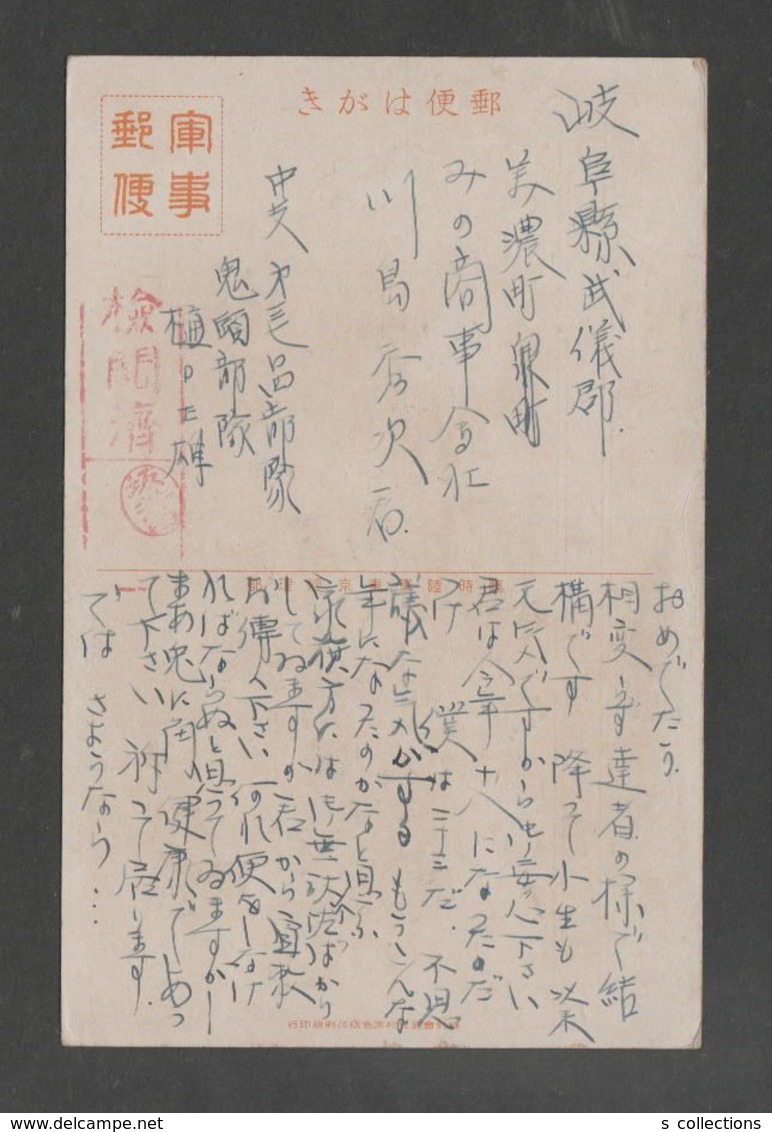 郵便はがき
軍事
郵便
岐阜縣武儀郡
美濃町泉町
みの商事会社
川島秀次君
中支
呂部隊
鬼頭部隊
樋口
検閲済
おめでたう
相変らず達者の様で結
構です 降て小生も以来
元気ですから御安心下さい
君は今年十八になったのだ
ね 僕は二十三だ. 不思
議な気がする もうこんな
年になったのかなと思ふ
家族方には御無沙汰ばかり
してゐますが君から宜敷
お傳へ下さい 何れ便をしなけ
ればならぬと思ってゐますが
まあ兎に角 健康であっ
て下さい 祈って居ます.
では さようなら…
delcampe.net
s collections